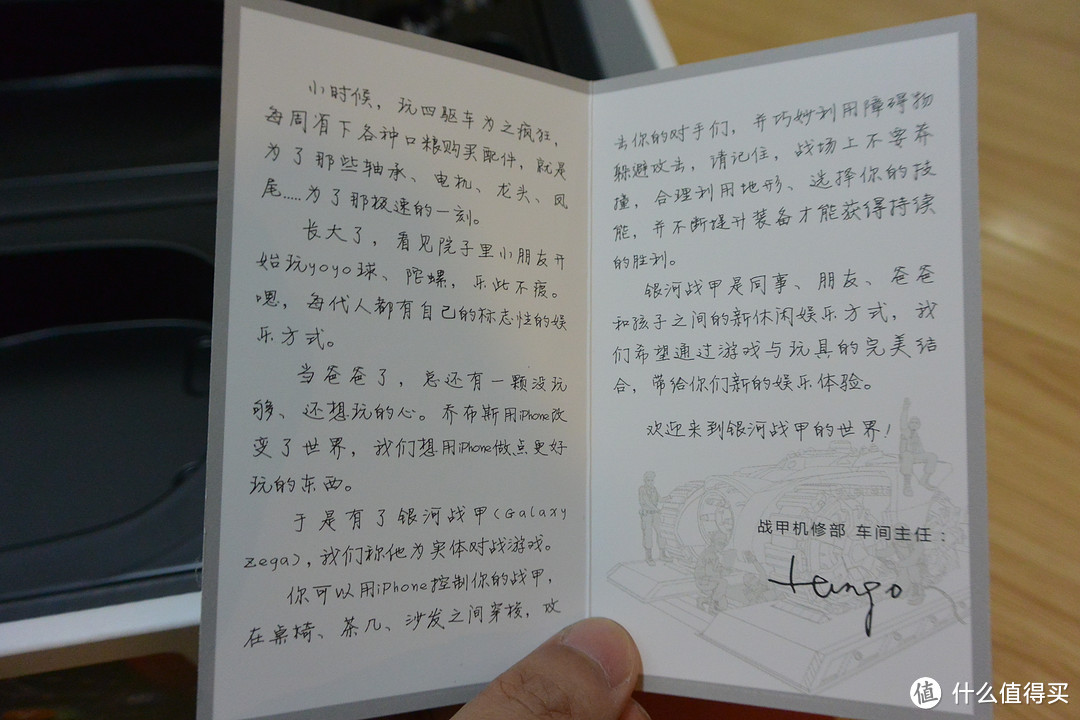 小时候，玩四驱车为之疯狂，
每周省下各种口粮购买配件，就是
为了那些轴承、电机、龙头、凤
尾……为了那极速的一刻。
长大了，看见院子里小朋友开
始玩yoyo球、陀螺，乐此不疲。
嗯，每代人都有自己的标志性的娱
乐方式。
当爸爸了，总还有一颗没玩
够、还想玩的心。乔布斯用iPhone改
变了世界，我们想用iPhone做点更好
玩的东西。
于是有了银河战甲（Galaxy
Zega），我们称他为实体对战游戏。
你可以用iPhone控制你的战甲，
在桌椅、茶几、沙发之间穿梭，攻
去你的对手们，并巧妙利用障碍物
躲避攻击，请记住，战场上不要莽
撞，合理利用地形、选择你的技
能，并不断提升装备才能获得持续
的胜利。
银河战甲是同事、朋友、爸爸
和孩子之间的新休闲娱乐方式，我
们希望通过游戏与玩具的完美结
合，带给你们新的娱乐体验。
欢迎来到银河战甲的世界！
战甲机修部 车间主任：
tango
值 什么值得买